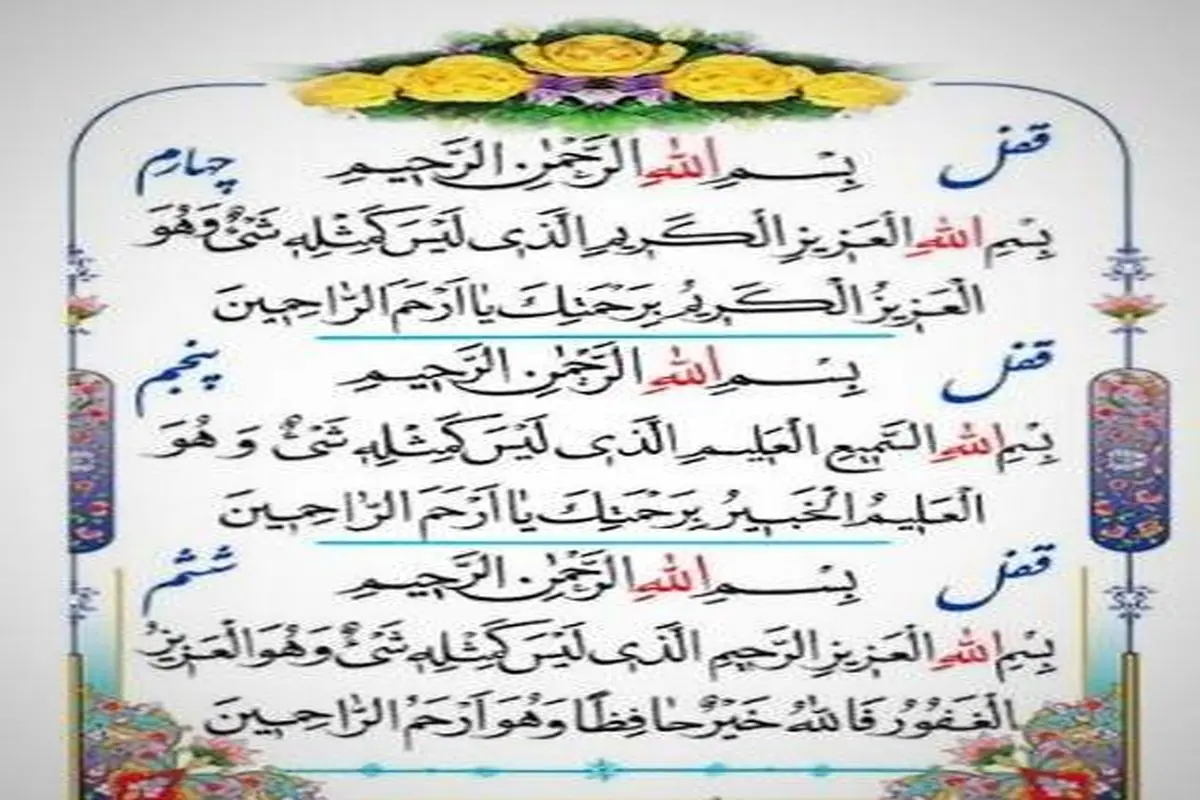 قفل چهارم
بِسْمِ اللهِ الرَّحْمٰنِ الرَّحِیمِ
بِسْمِ اللهِ الْعَزِیزِ الْکَرِیمِ الَّذِی لَیْسَ کَمِثْلِهِ شَیْءٌ وَهُوَ
الْعَزِیزُ الْکَرِیمُ بِرَحْمَتِكَ یٰا اَرْحَمَ الرّٰاحِمِینَ
قفل پنجم
بِسْمِ اللهِ الرَّحْمٰنِ الرَّحِیمِ
بِسْمِ اللهِ السَّمِیعِ الْعَلِیمِ الَّذِی لَیْسَ کَمِثْلِهِ شَیْءٌ وَ هُوَ
الْعَلِیمُ الْخَبِیرُ بِرَحْمَتِكَ یٰا اَرْحَمَ الرّٰاحِمِینَ
قفل ششم
بِسْمِ اللهِ الرَّحْمٰنِ الرَّحِیمِ
بِسْمِ اللهِ الْعَزِیزِ الرَّحِیمِ الَّذِی لَیْسَ کَمِثْلِهِ شَیْءٌ وَهُوَ الْعَزِیزُ
الْغَفُورُ فَاللهُ خَیْرٌ حٰافِظًا وَهُوَ اَرْحَمُ الرّٰاحِمِینَ